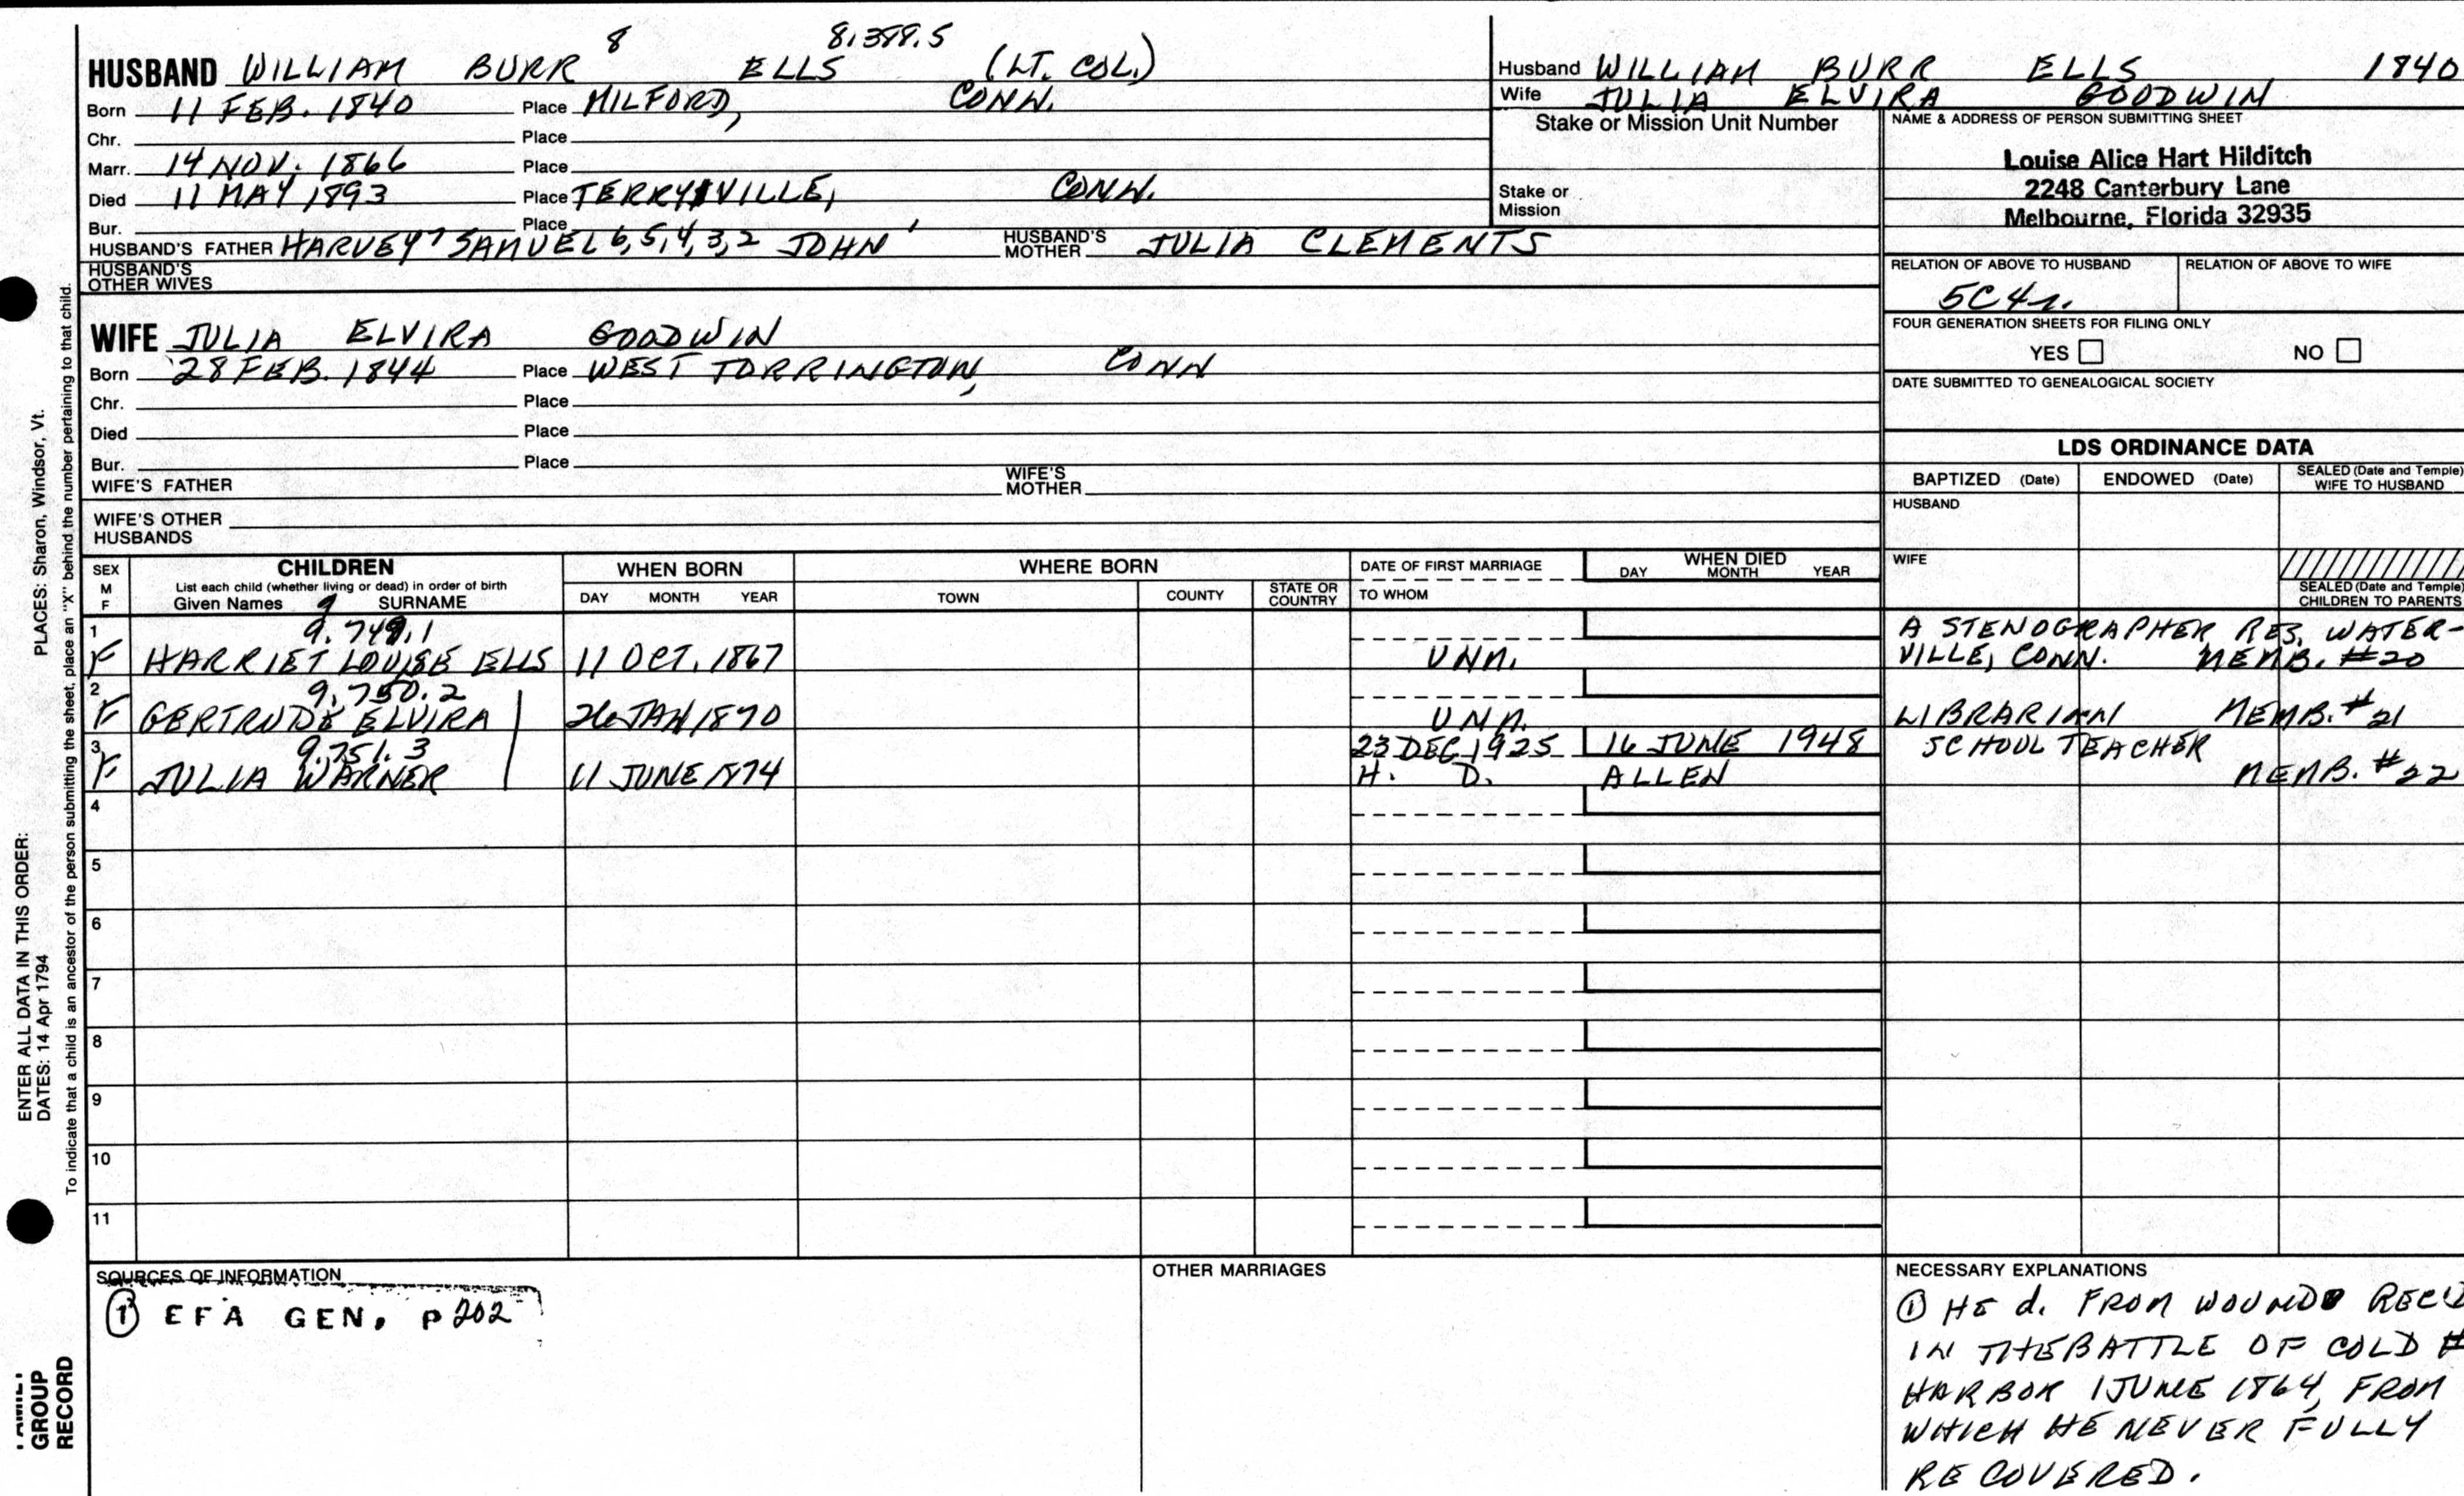 HUSBAND WILLIAM BURR 8 ELLS 8,388.5 (LT. COL.)
Born 11 FEB. 1840 Place MILFORD, CONN.
Chr. Place
Marr. 14 NOV. 1866 Place
Died 11 MAY 1893 Place TERRYVILLE, CONN.
Bur. Place
HUSBAND'S FATHER HARVEY 7 SAMUEL 6,5,4,3,2 JOHN 1 HUSBAND'S MOTHER JULIA CLEMENTS
HUSBAND'S OTHER WIVES
WIFE JULIA ELVIRA GOODWIN
Born 28 FEB. 1844 Place WEST TORRINGTON, CONN
Chr. Place
Died Place
Bur. Place
WIFE'S FATHER WIFE'S MOTHER
WIFE'S OTHER HUSBANDS
Husband WILLIAM BURR ELLS 1840
Wife JULIA ELVIRA GOODWIN
Stake or Mission Unit Number
Stake or Mission
NAME & ADDRESS OF PERSON SUBMITTING SHEET
Louise Alice Hart Hilditch
2248 Canterbury Lane
Melbourne, Florida 32935
RELATION OF ABOVE TO HUSBAND RELATION OF ABOVE TO WIFE
5C4r.
FOUR GENERATION SHEETS FOR FILING ONLY
YES NO
DATE SUBMITTED TO GENEALOGICAL SOCIETY
LDS ORDINANCE DATA
BAPTIZED (Date) ENDOWED (Date) SEALED (Date and Temple) WIFE TO HUSBAND
HUSBAND
WIFE
SEALED (Date and Temple) CHILDREN TO PARENTS
SEX M F CHILDREN List each child (whether living or dead) in order of birth Given Names 9 SURNAME
WHEN BORN DAY MONTH YEAR
WHERE BORN TOWN COUNTY STATE OR COUNTRY
DATE OF FIRST MARRIAGE TO WHOM
WHEN DIED DAY MONTH YEAR
1 9.749.1 A STENOGRAPHER RES. WATER-
F HARRIET LOUISE ELLS 11 OCT. 1867 UNM. VILLE, CONN. MEMB. #20
2 9.750.2
F GERTRUDE ELVIRA 26 JAN 1870 UNM. LIBRARIAN MEMB. #21
3 9.751.3 23 DEC 1925 16 JUNE 1948 SCHOOL TEACHER
F JULIA WARNER 11 JUNE 1874 H. D. ALLEN MEMB. #22
4
5
6
7
8
9
10
11
SOURCES OF INFORMATION
① EFA GEN. p 202
OTHER MARRIAGES
NECESSARY EXPLANATIONS
① HE d. FROM WOUNDS REC'D
IN THE BATTLE OF COLD
HARBOR 1 JUNE 1864, FROM
WHICH HE NEVER FULLY
RECOVERED.
PLACES: Sharon, Windsor, Vt.
ENTER ALL DATA IN THIS ORDER:
DATES: 14 Apr 1794
To indicate that a child is an ancestor of the person submitting the sheet, place an "X" behind the number pertaining to that child.
GROUP
RECORD